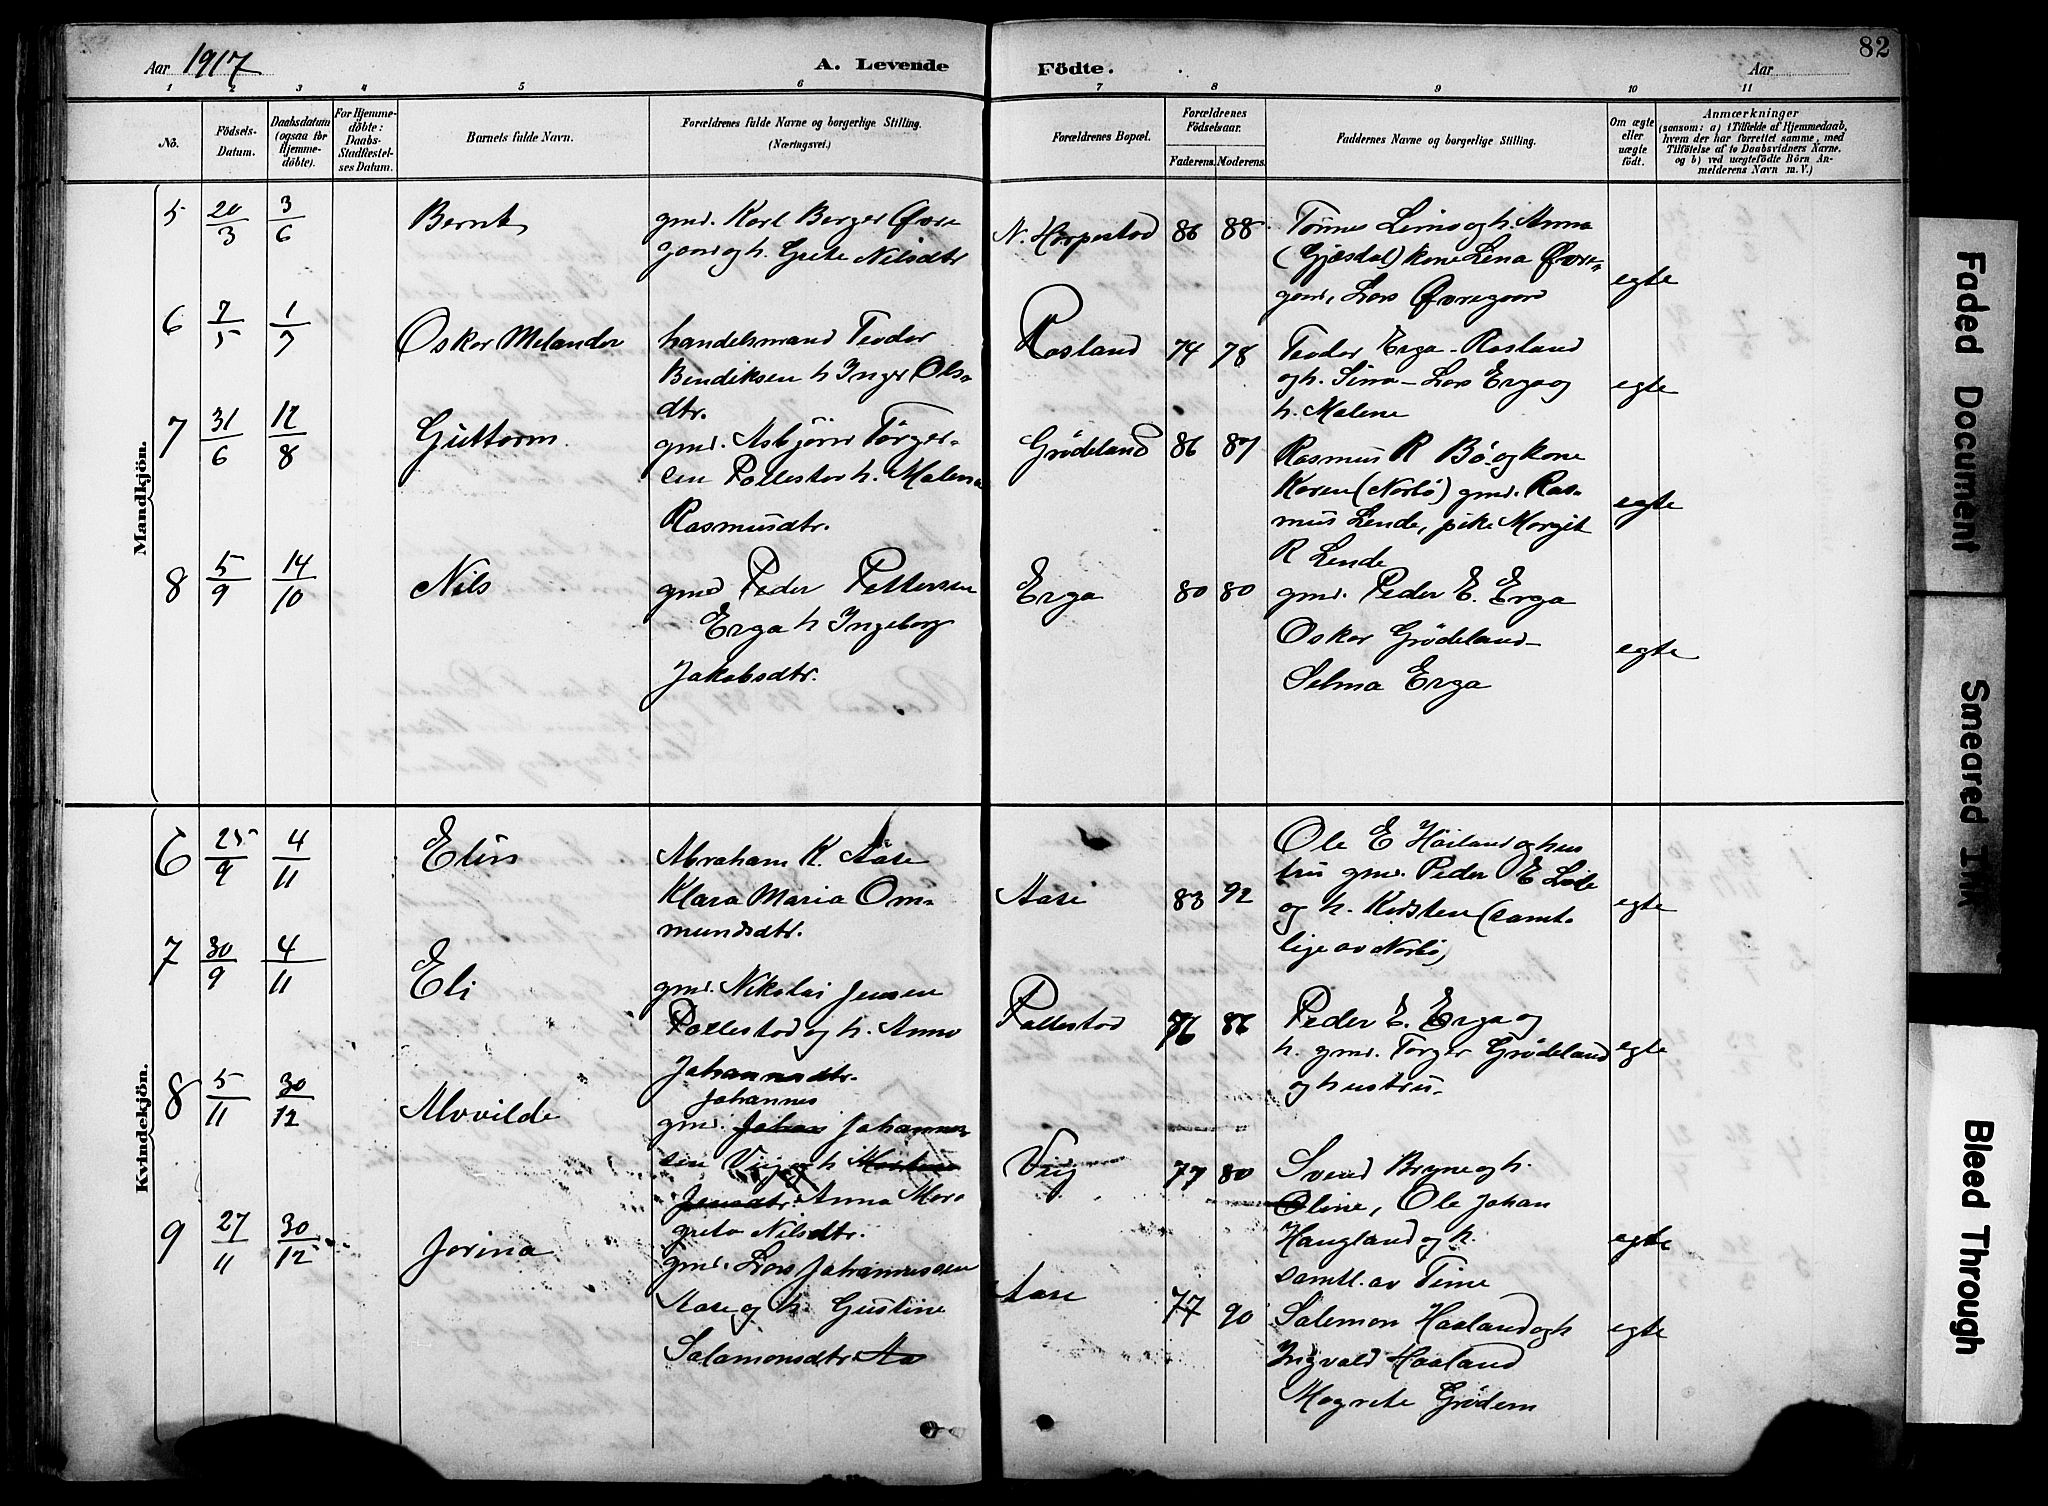 82
Aar 1917
A. Levende Födte.
Aar
1 2 3 4 5 6 7 8 9 10 11
No.
Födsels-Datum.
Daabsdatum (ogsaa for Hjemme-döbte).
For Hjemme-döbte: Daabs-Stadfestel-ses Datum.
Barnets fulde Navn.
Forældrenes fulde Navne og borgerlige Stilling.
(Næringsvei.)
Forældrenes Bopæl.
Forældrenes Födselsaar.
Faderens. Moderens.
Faddernes Navne og borgerlige Stilling.
Om ægte eller uægte födt.
Anmærkninger
(saasom: a) i Tilfælde af Hjemmedaab,
hvem der har forrettet samme, med
Tilföielse af to Daabsvidners Navne,
og b) ved uægtefödte Börn An-
melderens Navn m. V.)
Mandkjön.
5 20/3 3/6 Bernt
gmd. Karl Berger Øvre-
gaard og h. Grete Nilsdtr
N. Horpestad 86 88
Tönnes Lima og h. Anna
(Gjæsdal) kone Lena Øvre-
gard, Lars Øvregaard
egte
6 7/5 1/7 Oskar Melander
handelsmand Teodor
Bendiksen h Inger Ols-
dtr.
Rosland 74 78
Teodor Erga - Rosland
og h. Sina - Lars Erga og
h. Malene
egte
7 31/6 12/8 Guttorm
gmd. Asbjörn Törger-
sen Pollestad h. Malena
Rasmusdtr.
Grödeland 86 87
Rasmus R Bö og kone
Karen (Norbö) gmd. Ras-
mus Lende, pike Margit
R Lende
egte
8 5/9 14/10 Nils
gmd Peder Pettersen
Erga h Ingeborg
Jakobsdtr.
Erga 80 80
gmd. Peder E. Erga
Oskar Grödeland -
Selma Erga
egte
Kvindekjön.
6 25/9 4/11 Eliis
Abraham K. Aase
Klara Maria Om-
mundsdtr.
Aase 83 92
Ole E Höiland og hus
tru gmd. Peder E Lode
og h. Kirsten (samt-
lige av Norbö)
egte
7 30/9 4/11 Eli
gmd. Nikolai Jensen
Pollestad og h. Anna
Johannesdtr.
Pollestad 76 86
Peder E. Erga og
h. gmd. Torger Grödeland
og hustru.
egte
8 5/11 30/12 Alvvilde
Johannes
gmd. Johan Johannes-
sen Vig og h Martine
Jensdtr. Anna Mar-
greta Nilsdtr.
Vig 77 80
Svend Bryne og h.
Oline, Ole Johan
Haugland og h.
samtl. av Time
egte
9 27/11 30/12 Jorina
gmd. Lars Johannessen
Aase og h. Gustine
Salamonsdtr. Aa
Aase 77 90
Salemon Haaland og h
Ingvald Haaland
Magrete Grödem
egte
Faded Document
Smeared Ink
Bleed Through